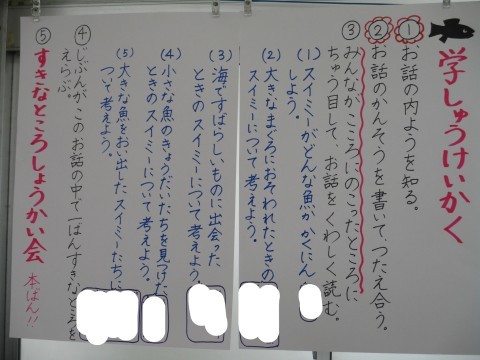 学しゅうけいかく
①お話の内ようを知る。
②お話のかんそうを書いて、つたえ合う。
③みんながこころにのこったところに
ちゅう目して、お話をくわしく読む。
(1)スイミーがどんな魚かかくにん
しよう。
(2)大きなまぐろにおそわれたときの
スイミーについて考えよう。
(3)海ですばらしいものに出会った
ときのスイミーについて考えよう。
(4)小さな魚のきょうだいたちを見つけた
ときのスイミーについて考えよう。
(5)大きな魚をおい出したスイミーたちに
ついて考えよう。
④じぶんがこのお話の中で一ばんすきなところを
えらぶ。
⑤すきなところしょうかい会 本ばん!!